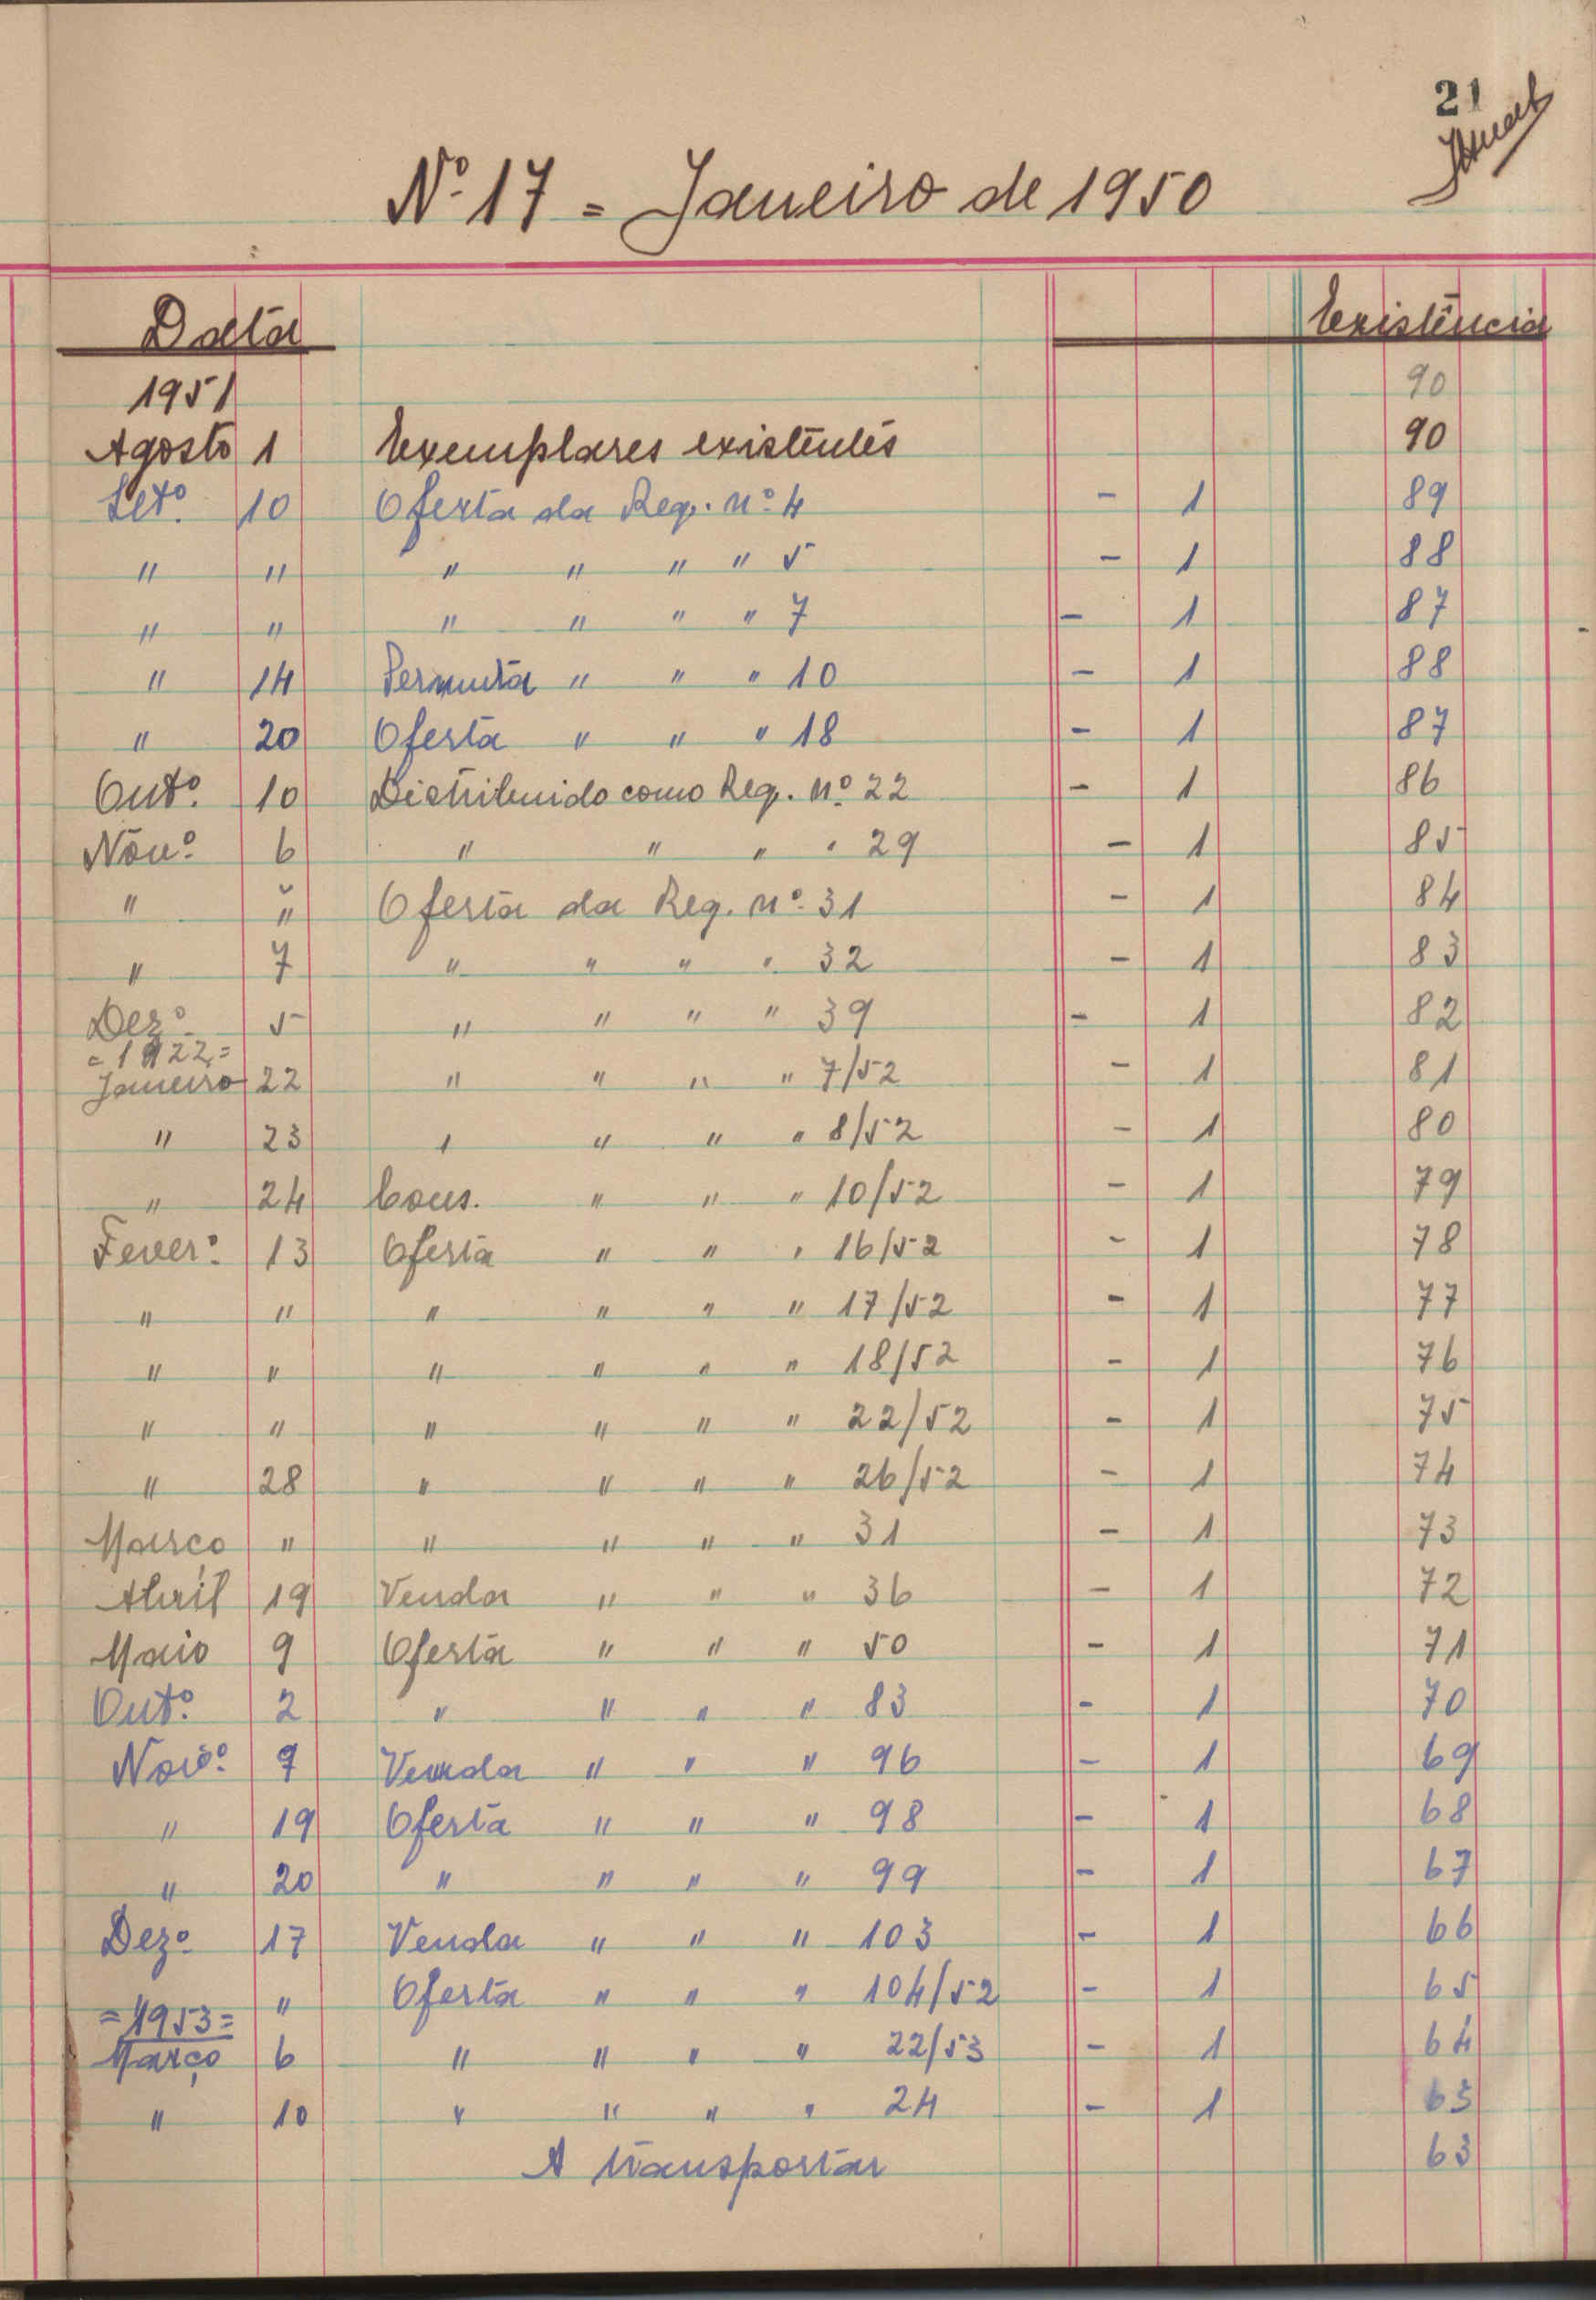 21
Nº 17 = Janeiro de 1950
Data Existência
1951 90
Agosto 1 Exemplares existentes 90
Setº. 10 Oferta da Req. nº 4 - 1 89
" " " " " " 5 - 1 88
" " " " " " 7 - 1 87
" 14 Permuta " " " 10 - 1 88
" 20 Oferta " " " 18 - 1 87
Outº. 10 Distribuido como Req. nº 22 - 1 86
Novº. 6 " " " " 29 - 1 85
" " Oferta da Req. nº 31 - 1 84
" 7 " " " " 32 - 1 83
Dezº. 5 " " " " 39 - 1 82
= 1922 =
Janeiro 22 " " " " 7/52 - 1 81
" 23 " " " " 8/52 - 1 80
" 24 Cons. " " " 10/52 - 1 79
Feverº. 13 Oferta " " " 16/52 - 1 78
" " " " " " 17/52 - 1 77
" " " " " " 18/52 - 1 76
" " " " " " 22/52 - 1 75
" 28 " " " " 26/52 - 1 74
Março " " " " " 31 - 1 73
Abril 19 Venda " " " 36 - 1 72
Maio 9 Oferta " " " 50 - 1 71
Outº. 2 " " " " 83 - 1 70
Novº. 7 Venda " " " 96 - 1 69
" 19 Oferta " " " 98 - 1 68
" 20 " " " " 99 - 1 67
Dezº. 17 Venda " " " 103 - 1 66
" Oferta " " " 104/52 - 1 65
= 1953 =
Março 6 " " " " 22/53 - 1 64
" 10 " " " " 24 - 1 63
A transportar 63